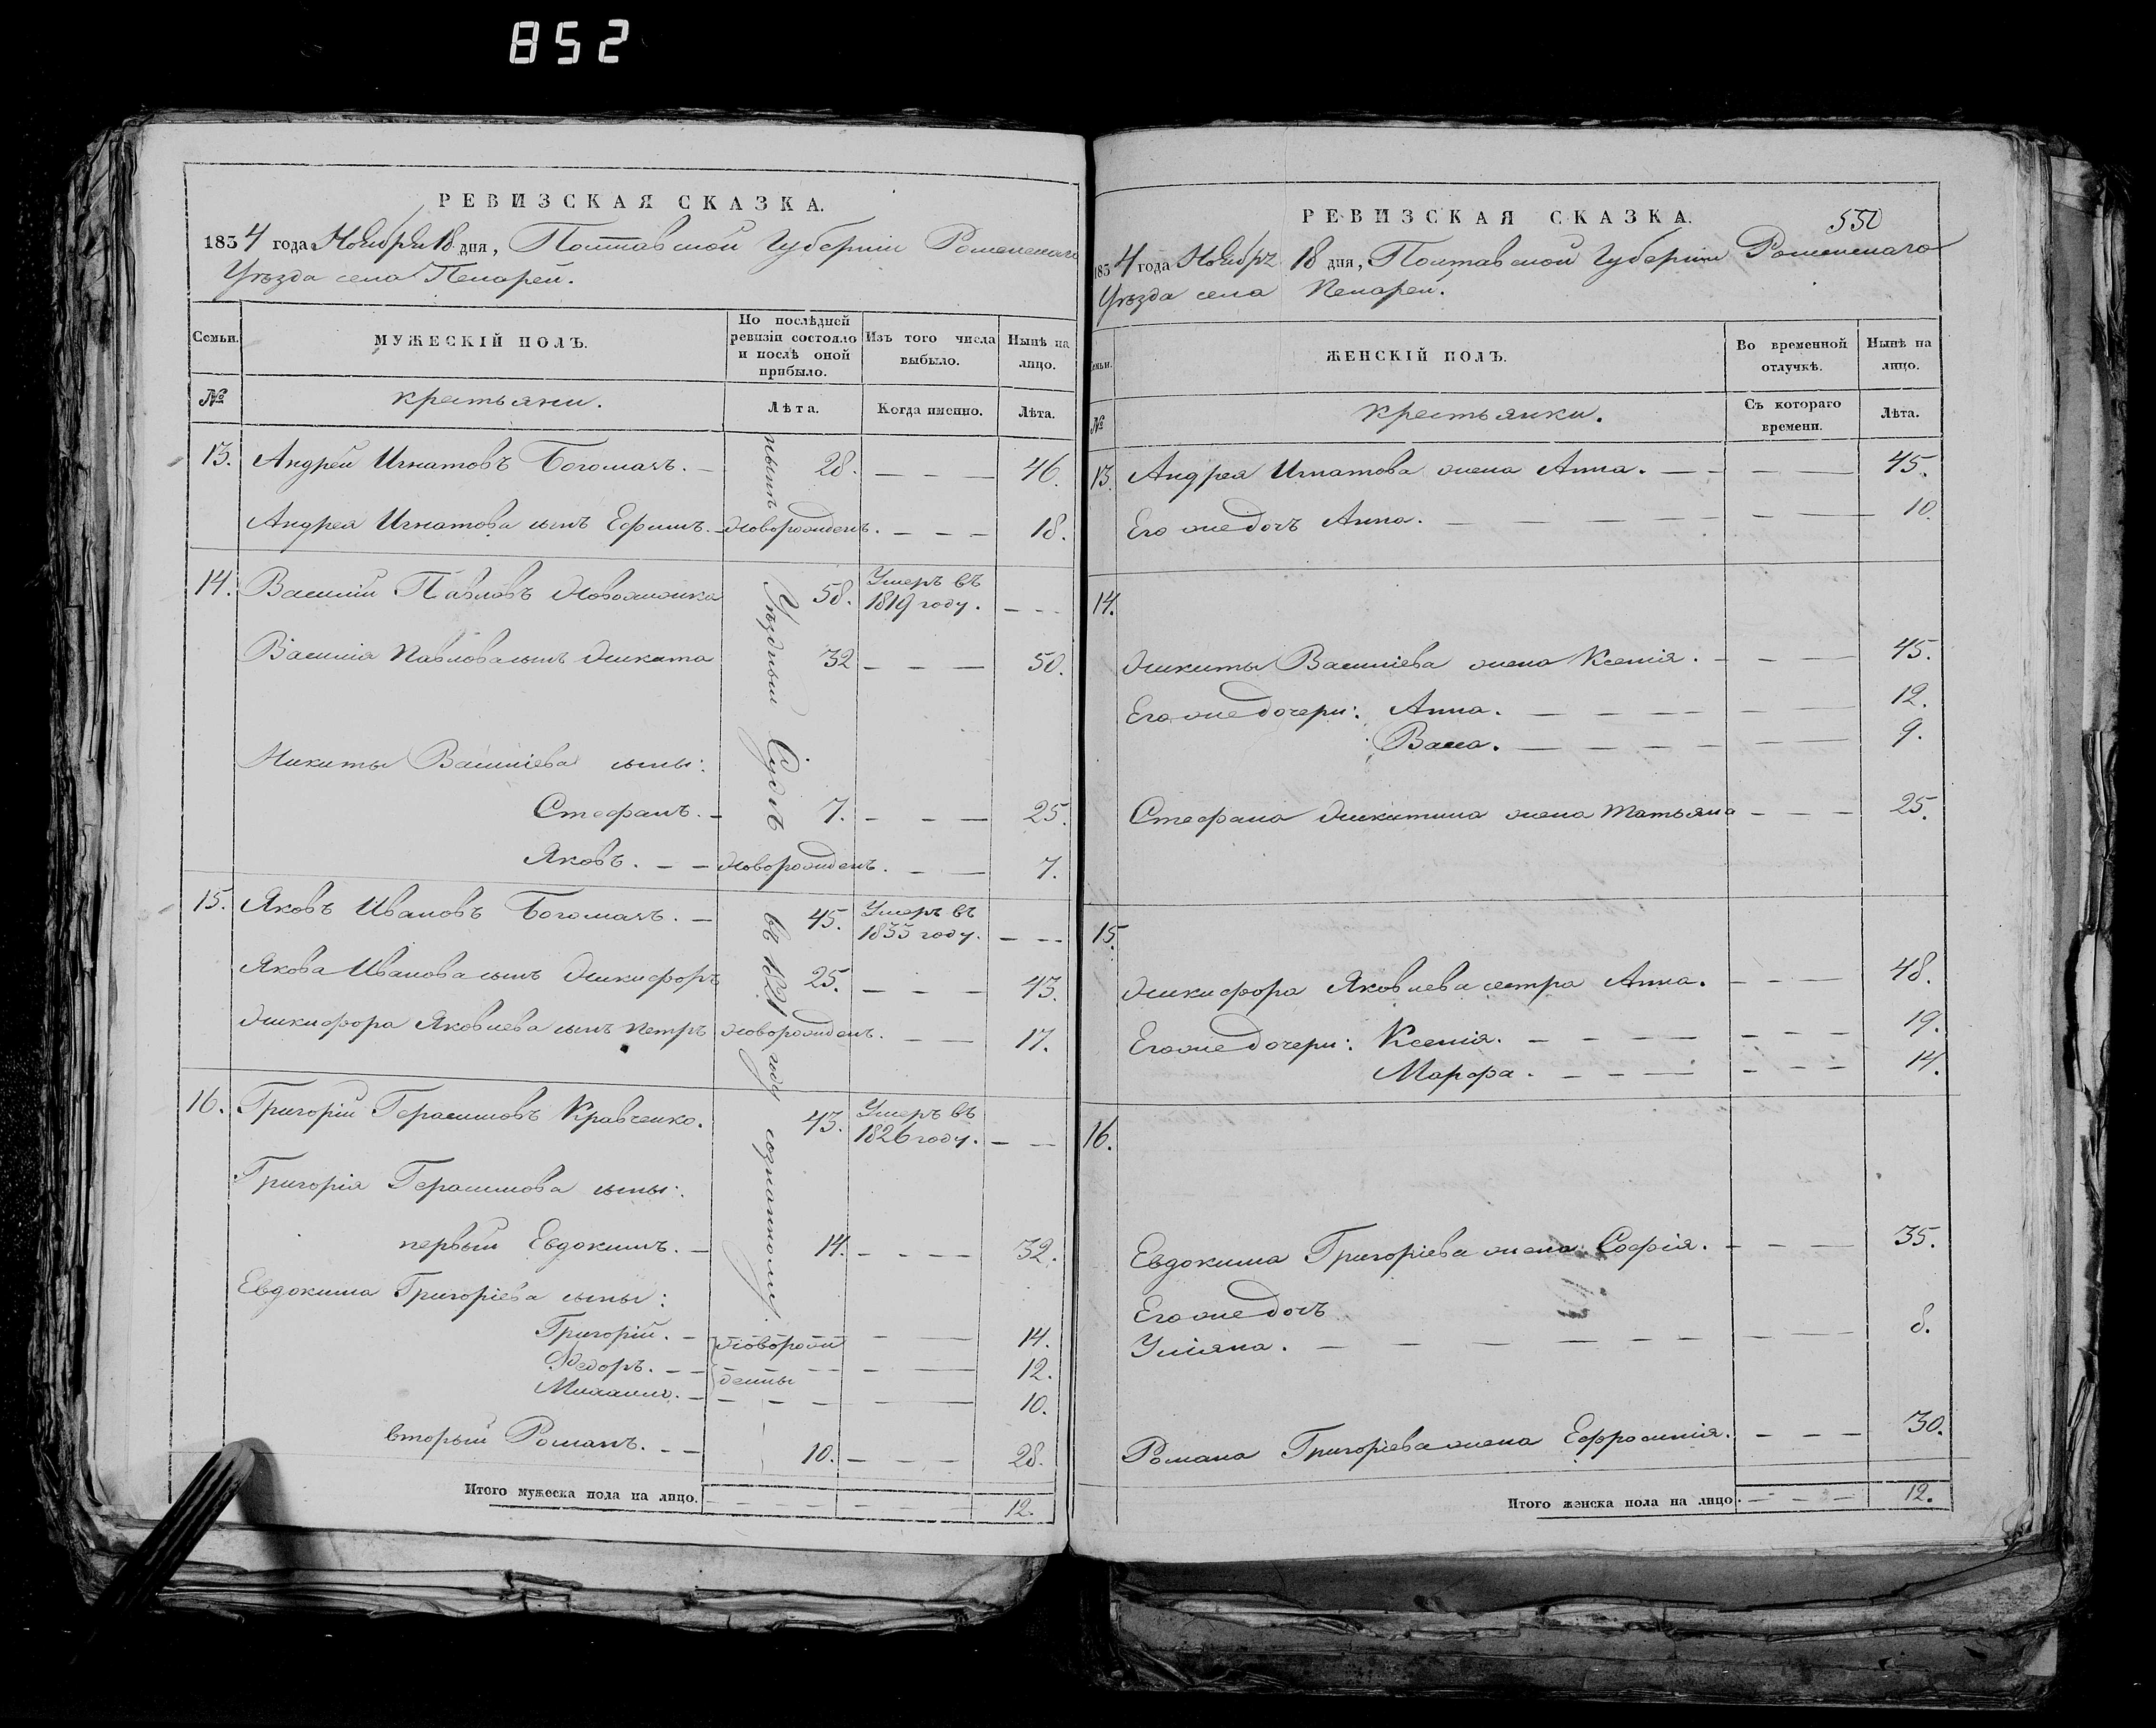 852
РЕВИЗСКАЯ СКАЗКА.
1834 года Ноября 18 дня, Полтавской Губерніи Роменскаго
Уѣзда села Пекарей.
Семьи.
МУЖЕСКІЙ ПОЛЪ.
По послѣдней ревизіи состояло и послѣ оной прибыло.
Изъ того числа выбыло.
Нынѣ на лицо.
№
крестьяни.
Лѣта.
Когда именно.
Лѣта.
13. Андрей Игнатовъ Богомазъ. 28. 46.
Андрея Игнатова сынъ Ефимъ. новорожденъ. 18.
14. Василій Павловъ 58. Умеръ въ 1819 году.
Василія Павлова сынъ Никита 32 50.
Никиты Василіева сыны:
Стефанъ. 7. 25.
Яковъ. новорожденъ. 7.
15. Яковъ Ивановъ Богомазъ. 45. Умеръ въ 1833 году.
Якова Иванова сынъ Никифоръ 25. 43.
Никифора Яковлева сынъ Петръ новорожденъ. 17.
16. Григорій Герасимовъ Кравченко. 43. Умеръ въ 1826 году.
Григорія Герасимова сыны:
первый Евдокимъ. 14. 32.
Евдокима Григоріева сыны:
Григорій. новорож 14.
Федоръ. денны 12.
Михаилъ. 10.
вторый Романъ. 10. 28.
Уѣздный Судъ въ 1821 году
Итого мужеска пола на лицо. 12.
РЕВИЗСКАЯ СКАЗКА.
550
1834 года Ноябр 18 дня, Полтавской Губерніи Роменскаго
Уѣзда села Пекарей.
Семьи.
ЖЕНСКІЙ ПОЛЪ.
Во временной отлучкѣ.
Нынѣ на лицо.
№
крестьянки.
Съ котораго времени.
Лѣта.
13. Андрея Игнатова жена Анна. 45.
Его же дочь Анна. 10.
14.
Никиты Василіева жена Ксенія. 45.
Его же дочери: Анна. 12.
9.
Стефана Никитина жена Татьяна 25.
15.
Никифора Яковлева сестра Анна. 48.
Его же дочери: Ксенія. 19.
Марфа. 14.
16.
Евдокима Григоріева жена Софія. 35.
Его же дочь
Уліяна. 8.
Романа Григоріева жена Ефросинія. 30.
Итого женска пола на лицо. 12.